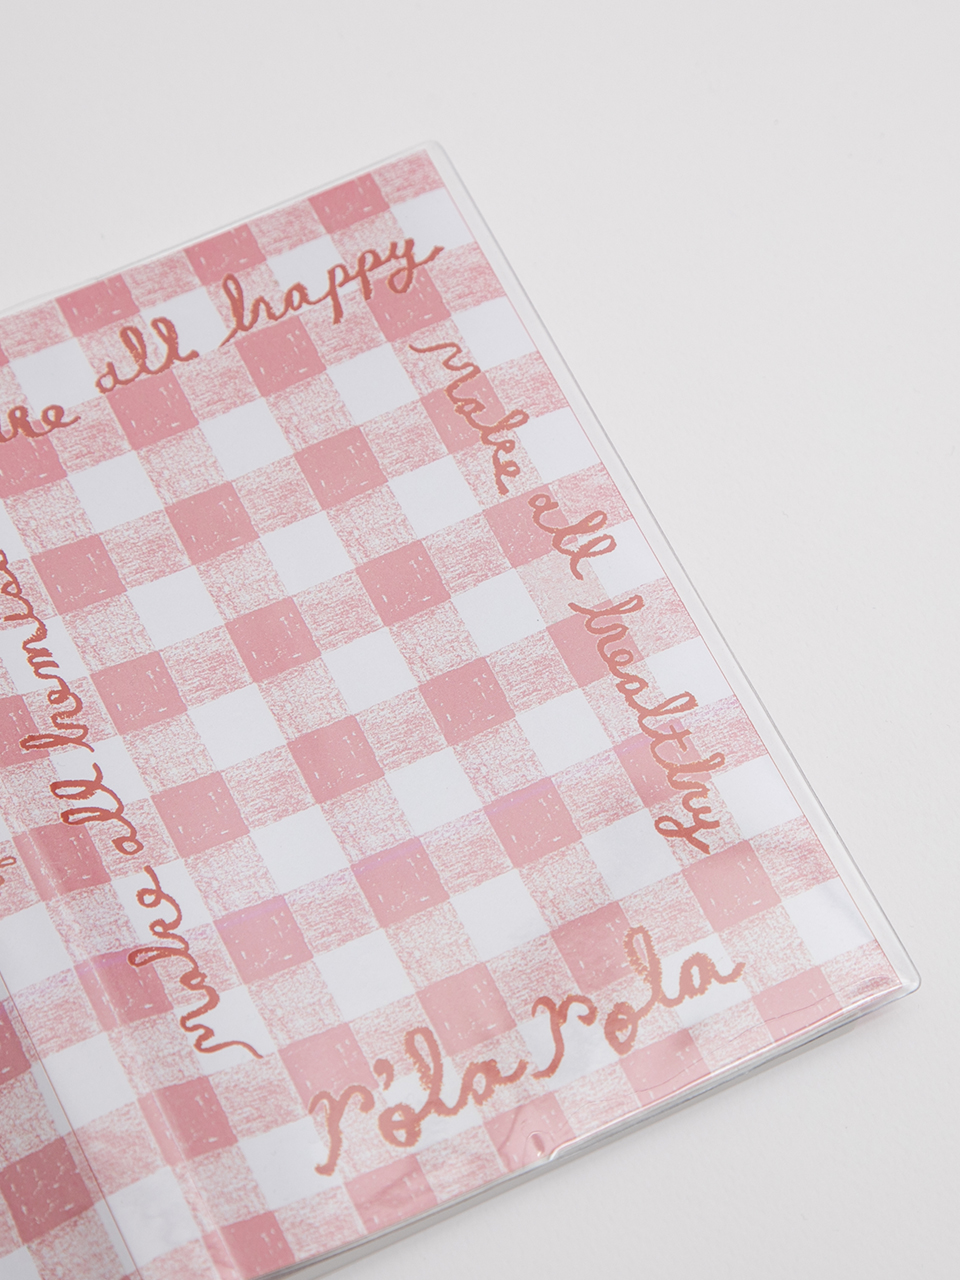 all happy
Make all healthy
make all
rola rola